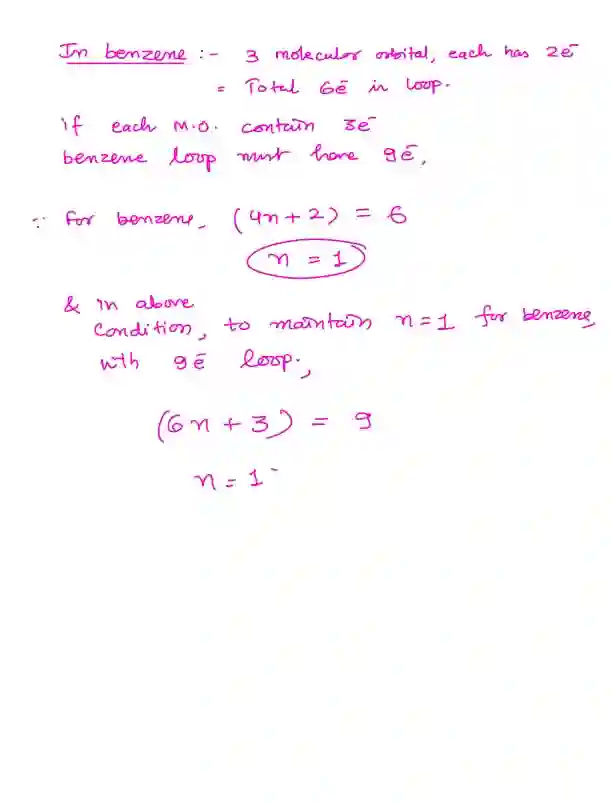 In benzene :- 3 molecular orbital, each has 2e⁻
= Total 6e⁻ in loop.
if each M.O. contain 3e⁻
benzene loop must have 9e⁻,
∵ for benzene, (4n+2) = 6
n = 1
& in above
condition, to maintain n=1 for benzene
with 9e⁻ loop.,
(6n + 3) = 9
n = 1